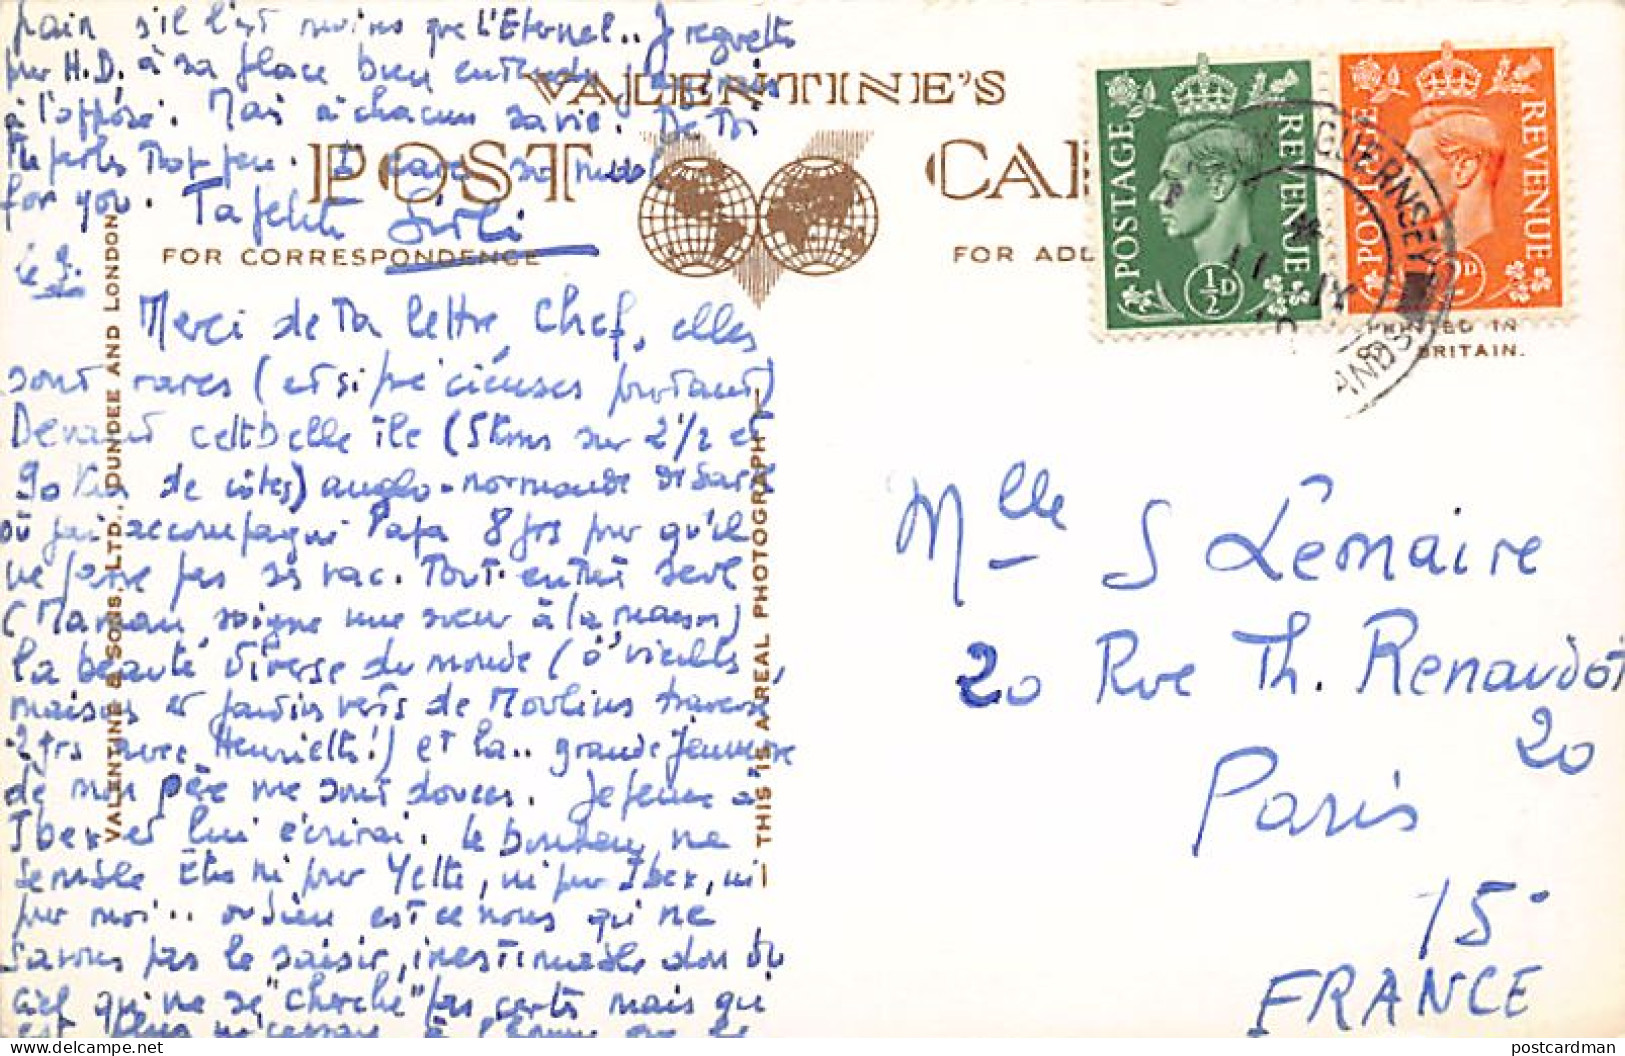 pain s'il l'est moins que l'Eternel.. Je regrette
pour H.D. à sa place bien entendu
à l'opposé. Mais à chacun sa vie. De Toi
Tu parles Trop peu. I care so much
for you. Ta petite
le 9.
VALENTINE'S
POST CAR
FOR CORRESPONDENCE
FOR ADD
POSTAGE REVENUE
½D
POSTAGE REVENUE
GUERNSEY
PRINTED IN
BRITAIN.
VALENTINE & SONS, LTD., DUNDEE AND LONDON
THIS IS A REAL PHOTOGRAPH
Merci de Ta lettre, Chef, elles
sont rares (et si précieuses pourtant)
Devant cette belle île (5kms sur 2 1/2 et
90 Km de côtes) anglo-normande de
où j'ai accompagné Papa 8 jrs pour qu'il
ne passe pas ses vac. Tout. entier seul
(Maman soigne une sœur à la maison)
la beauté diverse du monde (ô vieilles
maisons et jardins verts de Moulins traversé
2 jrs avec Henriette!) et la.. grande jeunesse
de mon père me sont douces. Je pense à
Ibex et lui écrirai. Le bonheur ne
semble être ni pour Yette, ni pour Ibex, ni
pour moi.. ou bien est ce nous qui ne
savons pas le saisir, inestimable don du
Ciel qui ne se "cherche" pas certes mais qui
est plus nécessaire à l'homme que le
Mlle S Lemaire
20 Rue Th. Renaudot
20
Paris
15°
FRANCE
postcardman